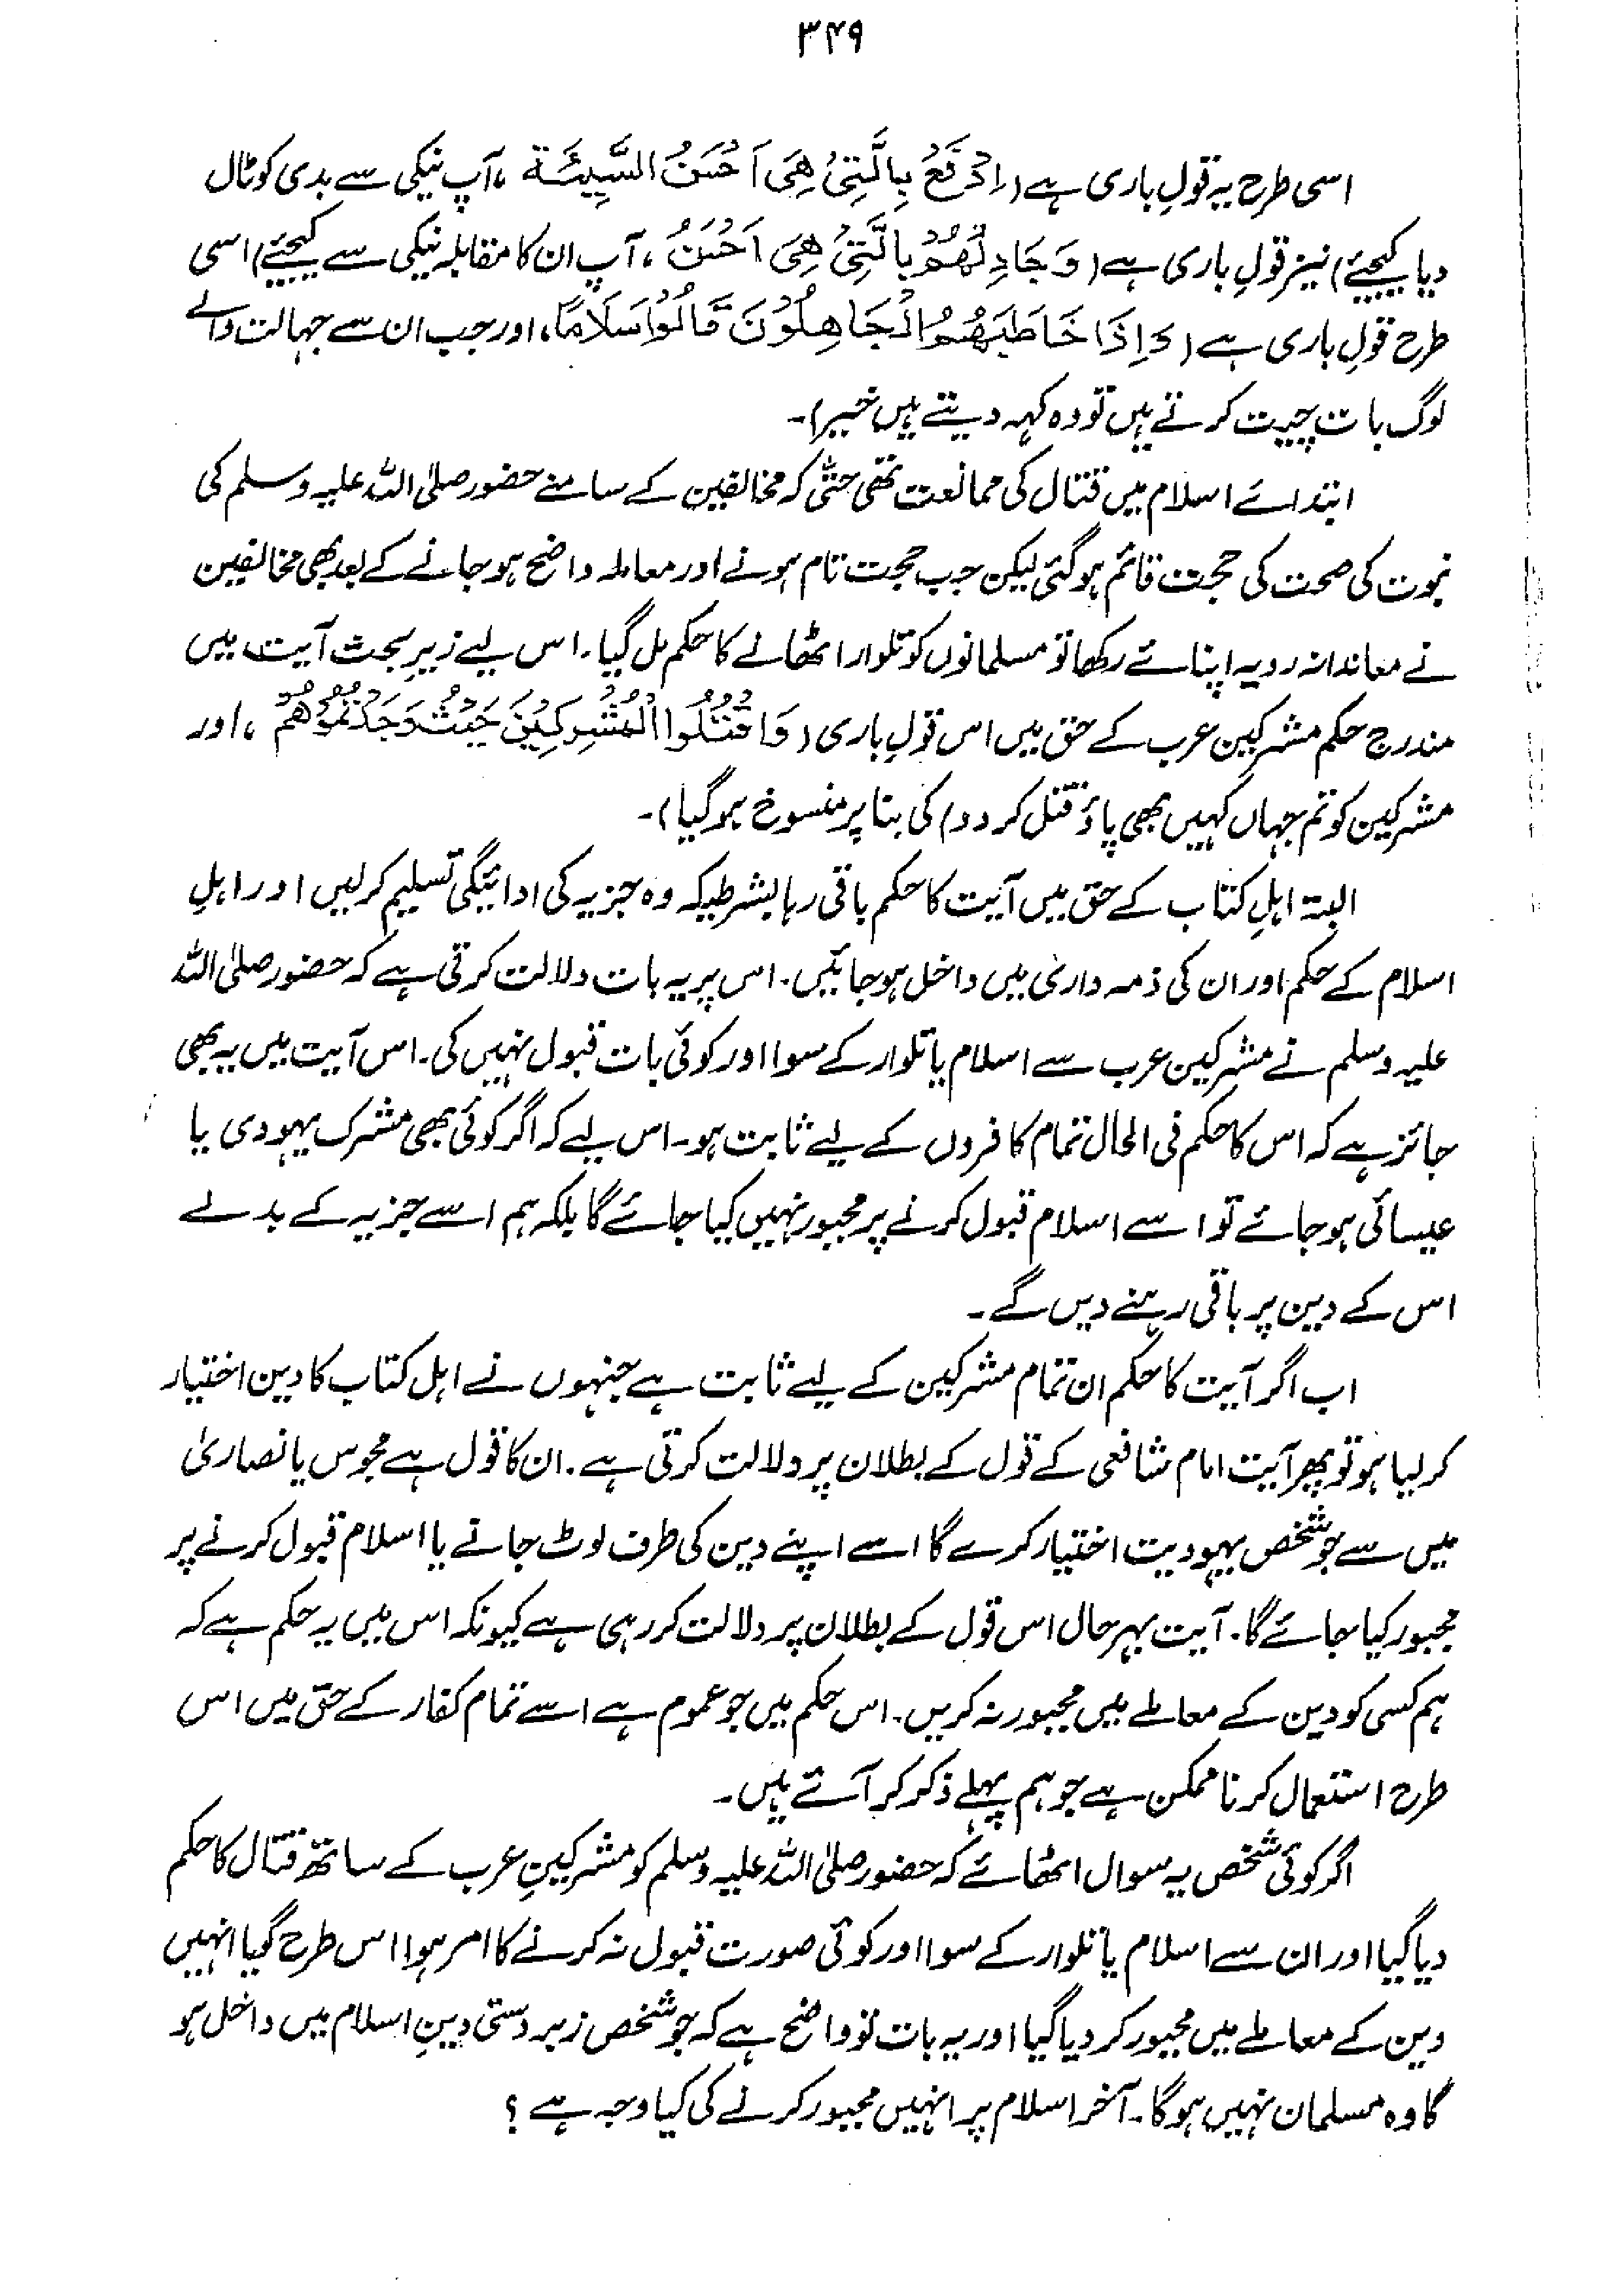 ۳۴۹
اسی طرح یہ قولِ باری ہے (اِدْفَعْ بِالَّتِیْ هِیَ اَحْسَنُ السَّیِّئَة ، آپ نیکی سے بدی کو ٹال
دیا کیجئے) نیز قولِ باری ہے (وَجَادِلْهُمْ بِالَّتِیْ هِیَ اَحْسَنُ ، آپ ان کا مقابلہ نیکی سے کیجئے) اسی
طرح قولِ باری ہے (وَاِذَا خَاطَبَهُمُ الْجَاهِلُوْنَ قَالُوْا سَلَامًا، اور جب ان سے جہالت والے
لوگ بات چیت کرتے ہیں تو وہ کہہ دیتے ہیں خیر)۔
ابتدائے اسلام میں قتال کی ممانعت تھی حتّٰی کہ مخالفین کے سامنے حضور صلی اللہ علیہ وسلم کی
نبوت کی صحت کی حجت قائم ہو گئی لیکن جب حجت تام ہونے اور معاملہ واضح ہو جانے کے بعد بھی مخالفین
نے معاندانہ رویہ اپنائے رکھا تو مسلمانوں کو تلوار اٹھانے کا حکم مل گیا۔ اس لیے زیرِ بحث آیت میں
مندرج حکم مشرکین عرب کے حق میں اس قولِ باری (فَاقْتُلُوا الْمُشْرِکِیْنَ حَیْثُ وَجَدْتُمُوْهُمْ ، اور
مشرکین کو تم جہاں کہیں بھی پاؤ قتل کر دو) کی بنا پر منسوخ ہو گیا)۔
البتہ اہلِ کتاب کے حق میں آیت کا حکم باقی رہا بشرطیکہ وہ جزیہ کی ادائیگی تسلیم کرلیں اور اہلِ
اسلام کے حکم اور ان کی ذمہ داری میں داخل ہو جائیں۔ اس پر یہ بات دلالت کرتی ہے کہ حضور صلی اللہ
علیہ وسلم نے مشرکین عرب سے اسلام یا تلوار کے سوا اور کوئی بات قبول نہیں کی۔ اس آیت میں یہ بھی
جائز ہے کہ اس کا حکم فی الحال تمام کافروں کے لیے ثابت ہو۔ اس لیے کہ اگر کوئی بھی مشرک یہودی یا
عیسائی ہو جائے تو اسے اسلام قبول کرنے پر مجبور نہیں کیا جائے گا بلکہ ہم اسے جزیہ کے بدلے
اس کے دین پر باقی رہنے دیں گے۔
اب اگر آیت کا حکم ان تمام مشرکین کے لیے ثابت ہے جنہوں نے اہل کتاب کا دین اختیار
کر لیا ہو تو پھر آیت امام شافعی کے قول کے بطلان پر دلالت کرتی ہے۔ ان کا قول ہے مجوس یا نصاریٰ
میں سے جو شخص یہودیت اختیار کرے گا اسے اپنے دین کی طرف لوٹ جانے یا اسلام قبول کرنے پر
مجبور کیا جائے گا۔ آیت بہرحال اس قول کے بطلان پر دلالت کر رہی ہے کیونکہ اس میں یہ حکم ہے کہ
ہم کسی کو دین کے معاملے میں مجبور نہ کریں۔ اس حکم میں جو عموم ہے اسے تمام کفار کے حق میں اس
طرح استعمال کرنا ممکن ہے جو ہم پہلے ذکر کر آئے ہیں۔
اگر کوئی شخص یہ سوال اٹھائے کہ حضور صلی اللہ علیہ وسلم کو مشرکینِ عرب کے ساتھ قتال کا حکم
دیا گیا اور ان سے اسلام یا تلوار کے سوا اور کوئی صورت قبول نہ کرنے کا امر ہوا اس طرح گویا انہیں
دین کے معاملے میں مجبور کر دیا گیا اور یہ بات تو واضح ہے کہ جو شخص زبردستی دینِ اسلام میں داخل ہو
گا وہ مسلمان نہیں ہوگا۔ آخر اسلام پر انہیں مجبور کرنے کی کیا وجہ ہے ؟